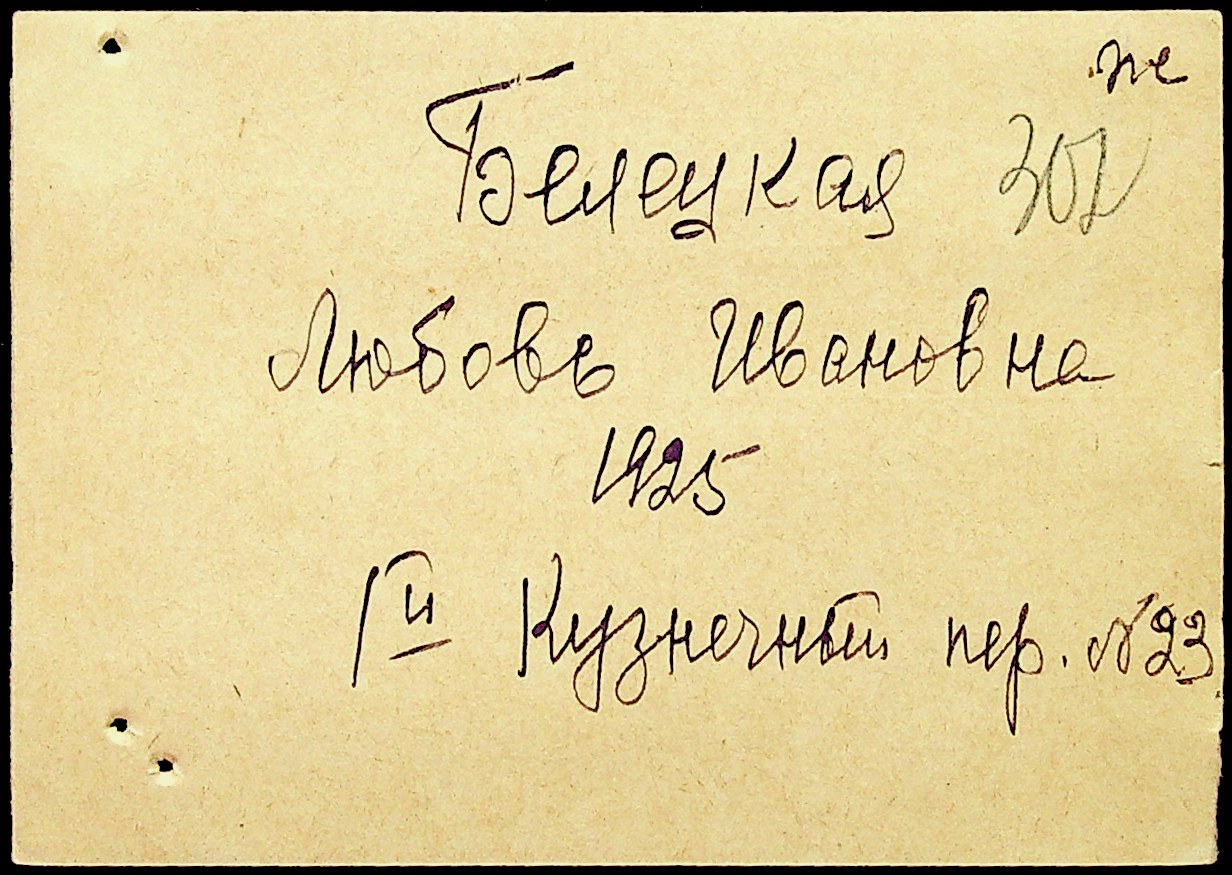 Белецкая
Любовь Ивановна
1925
Iй Кузнечный пер. №23